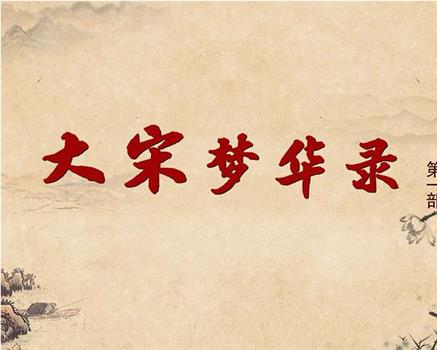 大宋梦华录
第一部